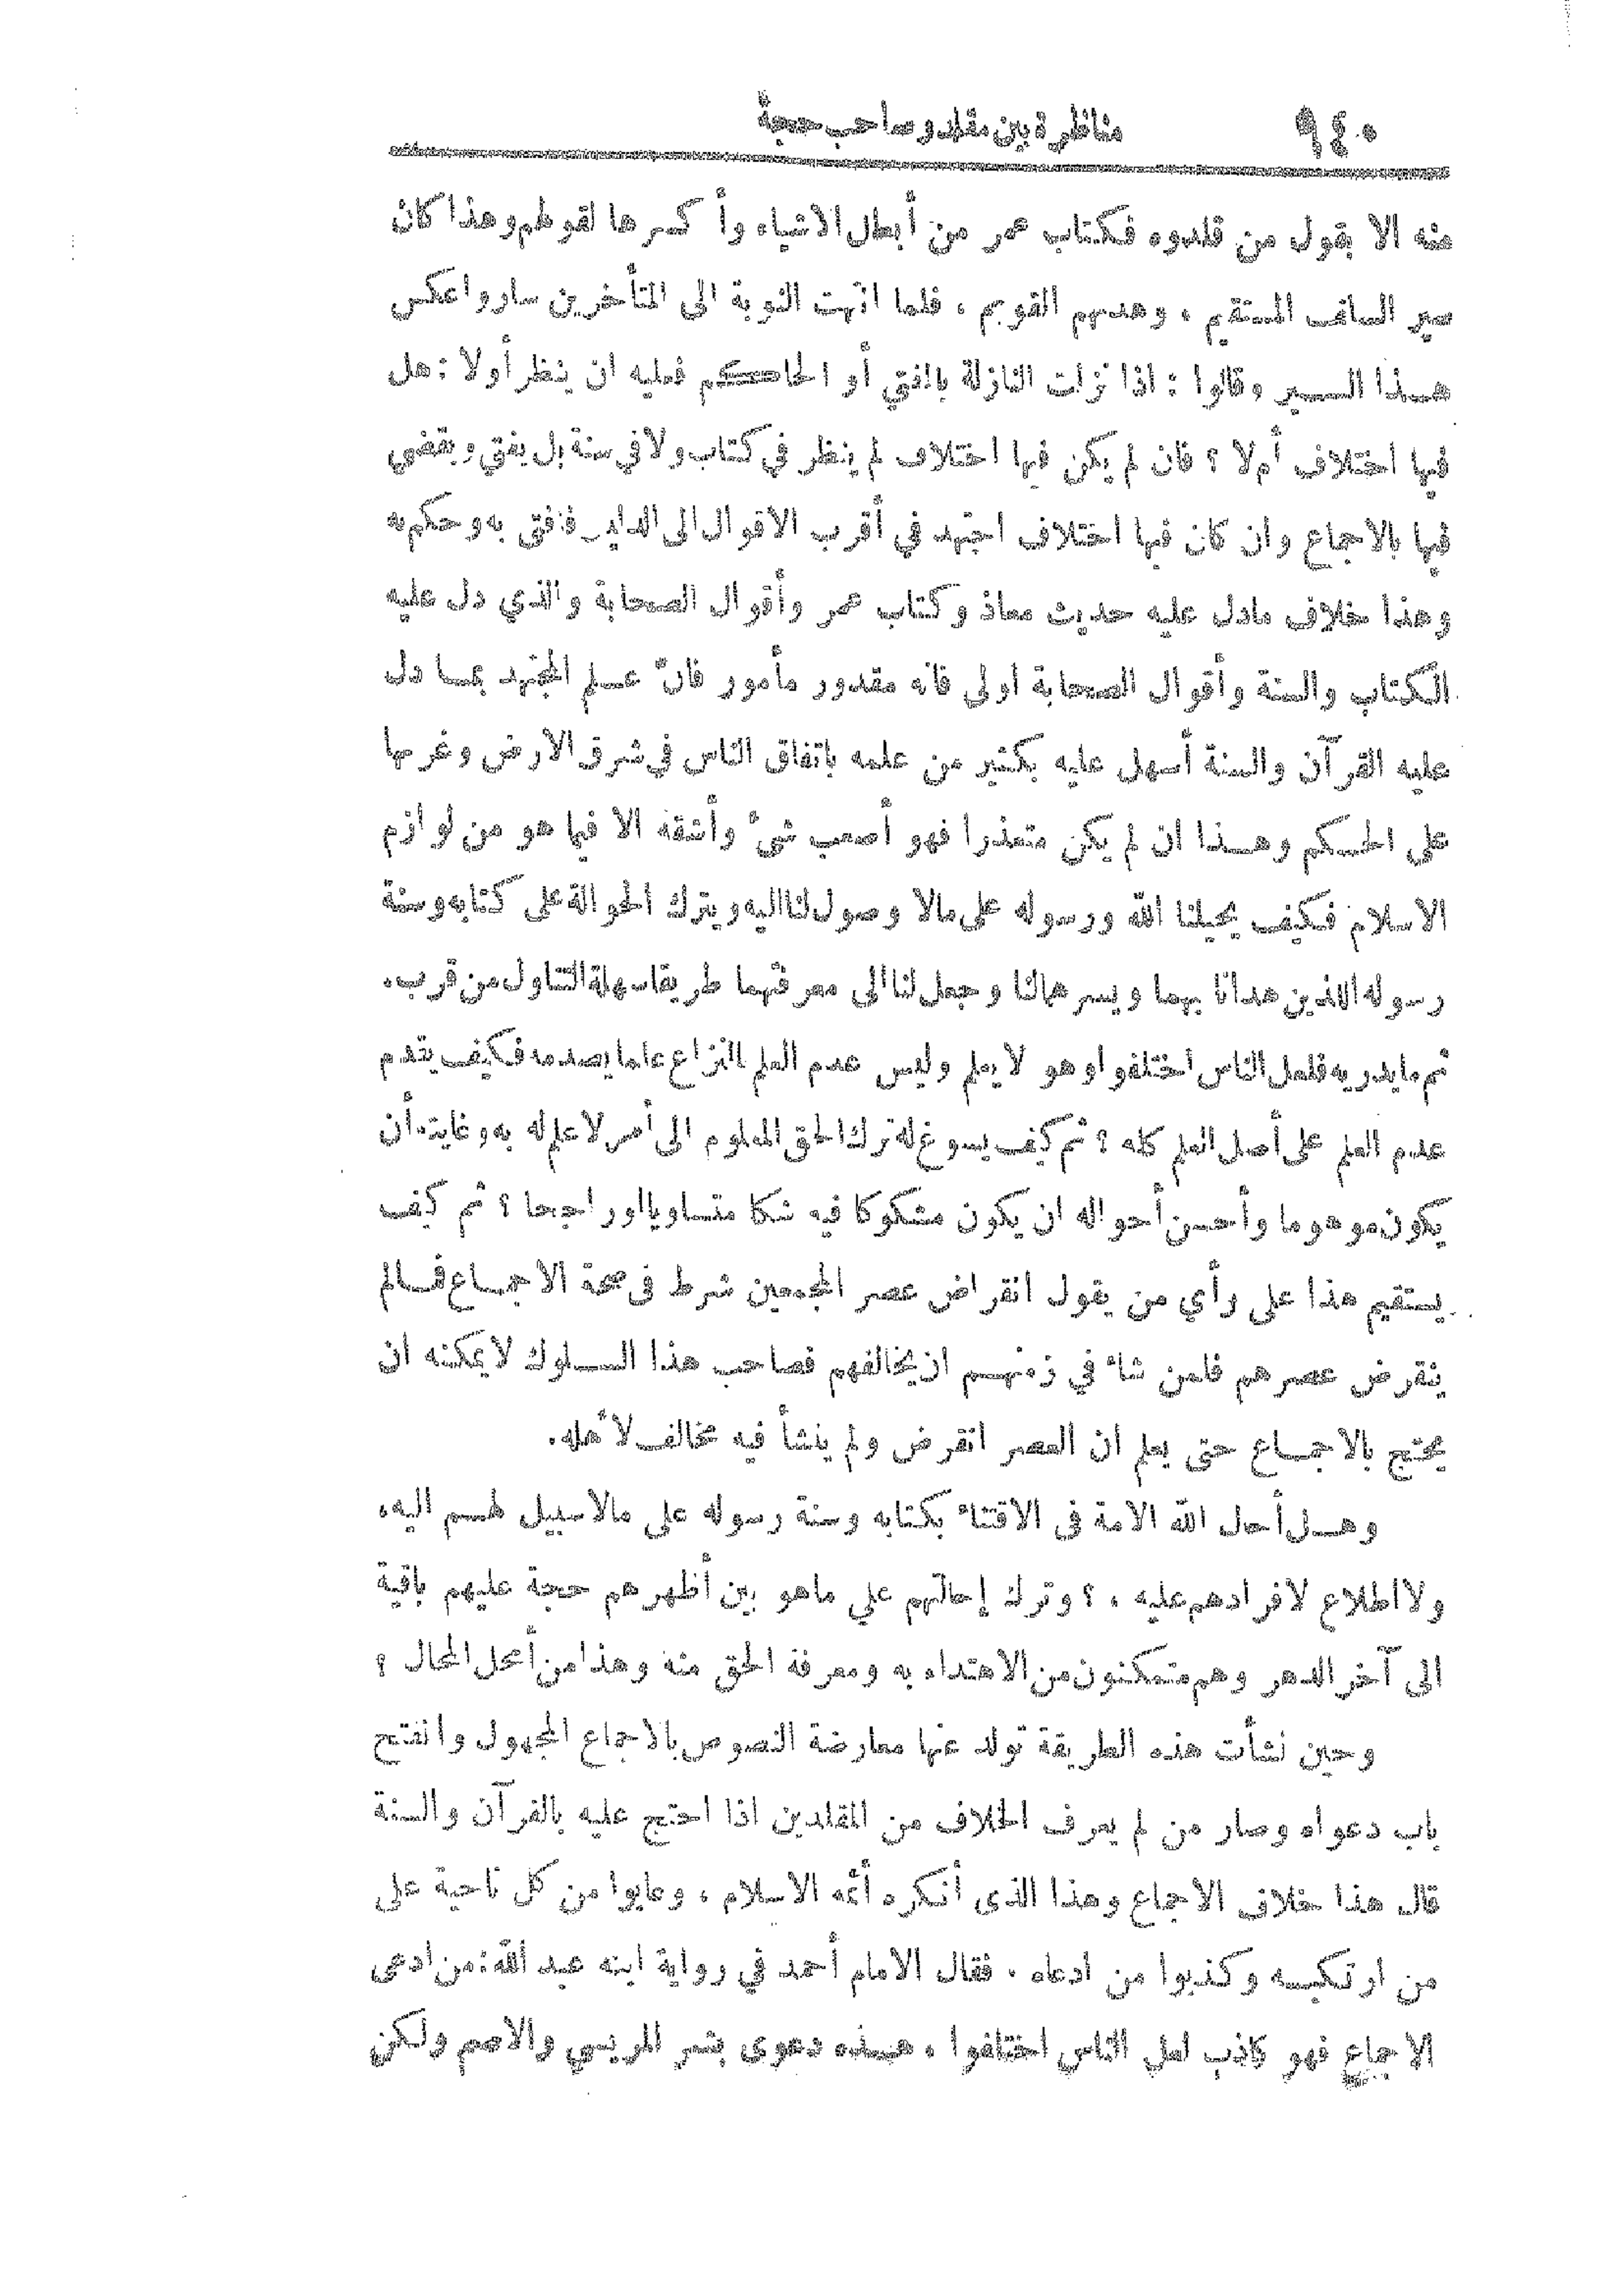 ٩٤٠ مناظرة بين مقلد وصاحب حجة
منه الا بقول من قلدوه فكتاب عمر من أبطل الاشياء وأكسرها لقولهم وهذا كان
سير السلف المستقيم ، وهديهم القويم ، فلما انتهت النوبة الى المتأخرين ساروا عكس
هذا السير وقالوا : اذا نزلت النازلة بالمفتي أو الحاكم فعليه ان ينظر أولا : هل
فيها اختلاف أم لا ؟ فان لم يكن فيها اختلاف لم ينظر في كتاب ولا في سنة بل يفتي ويقضى
فيها بالاجماع وان كان فيها اختلاف اجتهد في أقرب الاقوال الى الدليل فافتى به وحكم به
وهذا خلاف مادل عليه حديث معاذ وكتاب عمر وأقوال الصحابة والذي دل عليه
الكتاب والسنة وأقوال الصحابة أولى فانه مقدور مأمور فانّ علم المجتهد بما دل
عليه القرآن والسنة أسهل عليه بكثير من علمه باتفاق الناس في شرق الارض وغربها
على الحكم وهذا ان لم يكن متعذرا فهو أصعب شئ وأشقه الا فيما هو من لوازم
الاسلام فكيف يحيلنا الله ورسوله على مالا وصول لنا اليه ويترك الحوالة على كتابه وسنة
رسوله اللذين هدانا بهما ويسرهما لنا وجعل لنا الى معرفتهما طريقا سهلة التناول من قرب.
ثم ما يدريه فلعل الناس اختلفوا وهو لا يعلم وليس عدم العلم بالنزاع علما بعدمه فكيف يقدم
عدم العلم على أصل العلم كله ؟ ثم كيف يسوغ له ترك الحق المعلوم الى أمر لا علم له به وغايته أن
يكون موهوما وأحسن أحواله ان يكون مشكوكا فيه شكا متساويا او راجحا ؟ ثم كيف
يستقيم هذا على رأي من يقول انقراض عصر المجمعين شرط فى صحة الاجماع فما لم
ينقرض عصرهم فلمن نشأ في زمنهم ان يخالفهم فصاحب هذا السلوك لا يمكنه ان
يحتج بالاجماع حتى يعلم ان العصر انقرض ولم ينشأ فيه مخالف لأهله.
وهل أحال الله الامة فى الاقتداء بكتابه وسنة رسوله على مالا سبيل لهم اليه،
ولا اطلاع لافرادهم عليه ، ؟ وترك إحالتهم علي ماهو بين أظهرهم حجة عليهم باقية
الى آخر الدهر وهم متمكنون من الاهتداء به ومعرفة الحق منه وهذا من أمحل المحال ؟
وحين نشأت هذه الطريقة تولد عنها معارضة النصوص بالاجماع المجهول وانفتح
باب دعواه وصار من لم يعرف الخلاف من المقلدين اذا احتج عليه بالقرآن والسنة
قال هذا خلاف الاجماع وهذا الذى أنكره أئمة الاسلام ، وعابوا من كل ناحية على
من ارتكبه وكذبوا من ادعاه . فقال الامام أحمد في رواية ابنه عبد الله : من ادعى
الاجماع فهو كاذب لعل الناس اختلفوا ، هذه دعوى بشر المريسي والاصم ولكن